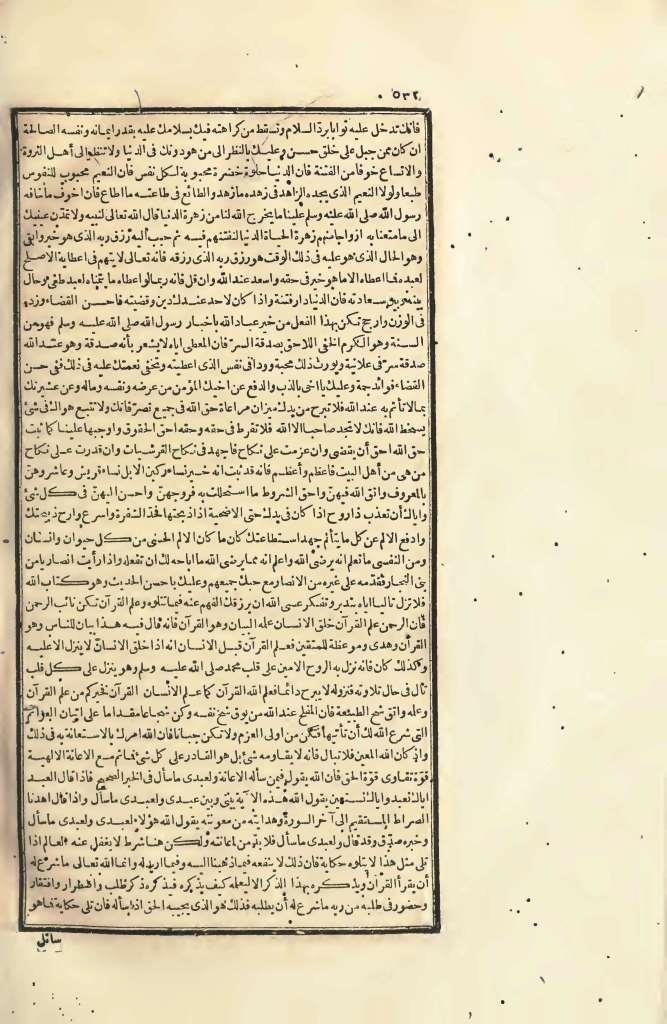 ٥٣٢
فانك تدخل عليه ثوابا برد السلام وتسقط من كراهته فيك بسلامك عليه بقدر ايمانه ونفسه الصالحة
ان كان ممن جبل على خلق حسن وعليك بالنظر الى من هو دونك فى الدنيا ولا تنظر الى أهل الثروة
والاتساع خوفا من الفتنة فان الدنيا حلوة خضرة محبوبة لكل نفس فان النعيم محبوب للنفوس
طبعا ولولا النعيم الذى يجده الزاهد فى زهده ما زهد والطائع فى طاعته ما اطاع فان اخوف ما خافه
رسول الله صلى الله عليه وسلم علينا ما يخرج الله لنا من زهرة الدنيا قال الله تعالى لنبيه ولا تمدن عينيك
الى ما متعنا به ازواجا منهم زهرة الحياة الدنيا لنفتنهم فيه ثم حبب اليه رزق ربه الذى هو خير وابقى
وهو الحال الذى هو عليه فى ذلك الوقت هو رزق ربه الذى رزقه فانه تعالى لا يتهم فى اعطاية الاصلح
لعبده فما اعطاه الا ما هو خير فى حقه واسعد عند الله وان قل فانه ربما لو اعطاه ما يتمناه لعبد طغى وحال
بينه وبين سعادته فان الدنيا دار فتنة واذا كان لاحد عندك دين وقضيته فاحسن القضاء وزده
فى الوزن وارجح تكن بهذا الفعل من خير عباد الله باخبار رسول الله صلى الله عليه وسلم فهو من
السنة وهو الكرم الخفى اللاحق بصدقة السر فان المعطى اياه لا يشعر بأنه صدقة وهو عند الله
صدقة سر فى علانية ويورث ذلك محبة وودا فى نفس الذى اعطيته وتخفى نعمتك عليه فى ذلك ففى حسن
القضاء فوائد جمة وعليك يا اخى بالذب والدفع عن اخيك المؤمن من عرضه ونفسه وماله وعن عشيرتك
بما لا تأثم به عند الله فلا تبرح من يدك ميزان مراعاة حق الله فى جميع تصرفاتك ولا تتبع هواك فى شئ
يسخط الله فانك لا تجد صاحبا الا الله فلا تفرط فى حقه وحقه احق الحقوق واوجبها علينا كما ثبت
حق الله احق أن يقضى وان عزمت على نكاح فاجهد فى نكاح القرشيات وان قدرت على نكاح
من هى من أهل البيت فاعظم وأعظم فانه قد ثبت انه خير نساء ركبن الابل نساء قريش وعاشروهن
بالمعروف واتق الله فيهن واحق الشروط ما استحللت به فروجهن واحسن اليهن فى كل شئ
واياك أن تعذب ذا روح اذا كان فى يدك حتى الاضحية اذا ذبحتها فحد الشفرة واسرع وارح ذبيحتك
وادفع الالم عن كل ما يتألم جهد استطاعتك كان ما كان الالم الحسى من كل حيوان وانسان
ومن النفسى ما تعلم انه يرضى الله واعلم انه مما يرضى الله ما اباحه لك ان تفعله واذا رأيت انصاريا من
بنى النجار فقدمه على غيره من الانصار مع حبك جميعهم وعليك باحسن الحديث وهو كتاب الله
فلا تزل تاليا اياه بتدبر وتفكر عسى الله ان يرزقك الفهم عنه فيما تتلوه وعلم القرآن تكن نائب الرحمن
فان الرحمن علم القرآن خلق الانسان علمه البيان وهو القرآن فانه قال فيه هذا بيان للناس وهو
القرآن وهدى وموعظة للمتقين فعلم القرآن قبل الانسان انه اذا خلق الانسان لا ينزل الا عليه
وكذلك كان فانه نزل به الروح الامين على قلب محمد صلى الله عليه وسلم وهو ينزل على كل قلب
تال فى حال تلاوته فنزوله لا يبرح دائما فعلم الله القرآن كما علم الانسان القرآن فخيركم من علم القرآن
وعلمه واتق شح الطبيعة فان المفلح عند الله من يوق شح نفسه وكن شجاعا مقداما على اتيان العزائم
التى شرع الله لك أن تأتيها فتكون من اولى العزم ولا تكن جبانا فان الله امرك بالاستعانة به فى ذلك
واذ كان الله المعين فلا تبال فانه لا يقاومه شئ بل هو القادر على كل شئ فما ثم مع الاعانة الالهية
قوة تقاوى قوة الحق فان الله يقول فيمن سأله الاعانة ولعبدى ما سأل فى الخبر الصحيح فاذا قال العبد
اياك نعبد واياك نستعين يقول الله هذه الآية بينى وبين عبدى ولعبدى ما سأل واذا قال اهدنا
الصراط المستقيم الى آخر السورة وهدايته من معونته يقول الله هؤلاء لعبدى ولعبدى ما سأل
وخبره صدق وقد قال ولعبدى ما سأل فلا بد من اعانته ولكن هنا شرط لا يغفل عنه العالم اذا
تلى مثل هذا لا يتلوه حكاية فان ذلك لا ينفعه فيما ذهبنا اليه وفيما اريد له وانما الله تعالى ما شرع له
أن يقرأ القرآن ويذكره بهذا الذكر الا ليعلمه كيف يذكره فيذكره ذكر طلب واضطرار وافتقار
وحضور فى طلبه من ربه ما شرع له أن يطلبه فذلك هو الذى يجيبه الحق اذا سأله فان تلى حكاية فما هو
سائل